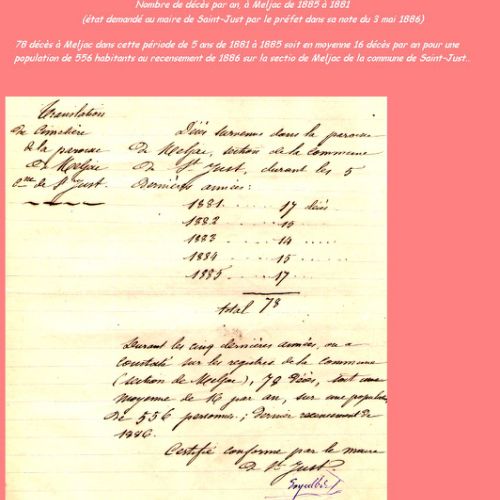 Nombre de décès par an, à Meljac de 1885 à 1881
(état demandé au maire de Saint-Just par le préfet dans sa note du 3 mai 1886)
78 décès à Meljac dans cette période de 5 ans de 1881 à 1885 soit en moyenne 16 décès par an pour une
population de 556 habitants au recensement de 1886 sur la sectio de Meljac de la commune de Saint-Just..
Translation
du Cimetière
de la paroisse
de Meljac
Cne de St Just.
Décès survenus dans la paroisse
de Meljac, section de la commune
de St Just, durant les 5
dernières années:
1881 ....... 17 décès
1882 ....... 15
1883 ....... 14
1884 ....... 15
1885 ....... 17
total 78
Durant les cinq dernières années, on a
constaté sur les registres de la commune
(section de Meljac), 78 décès, soit une
moyenne de 16 par an, sur une population
de 556 personnes; dernier recensement de
1886.
Certifié conforme par le maire
de St Just.